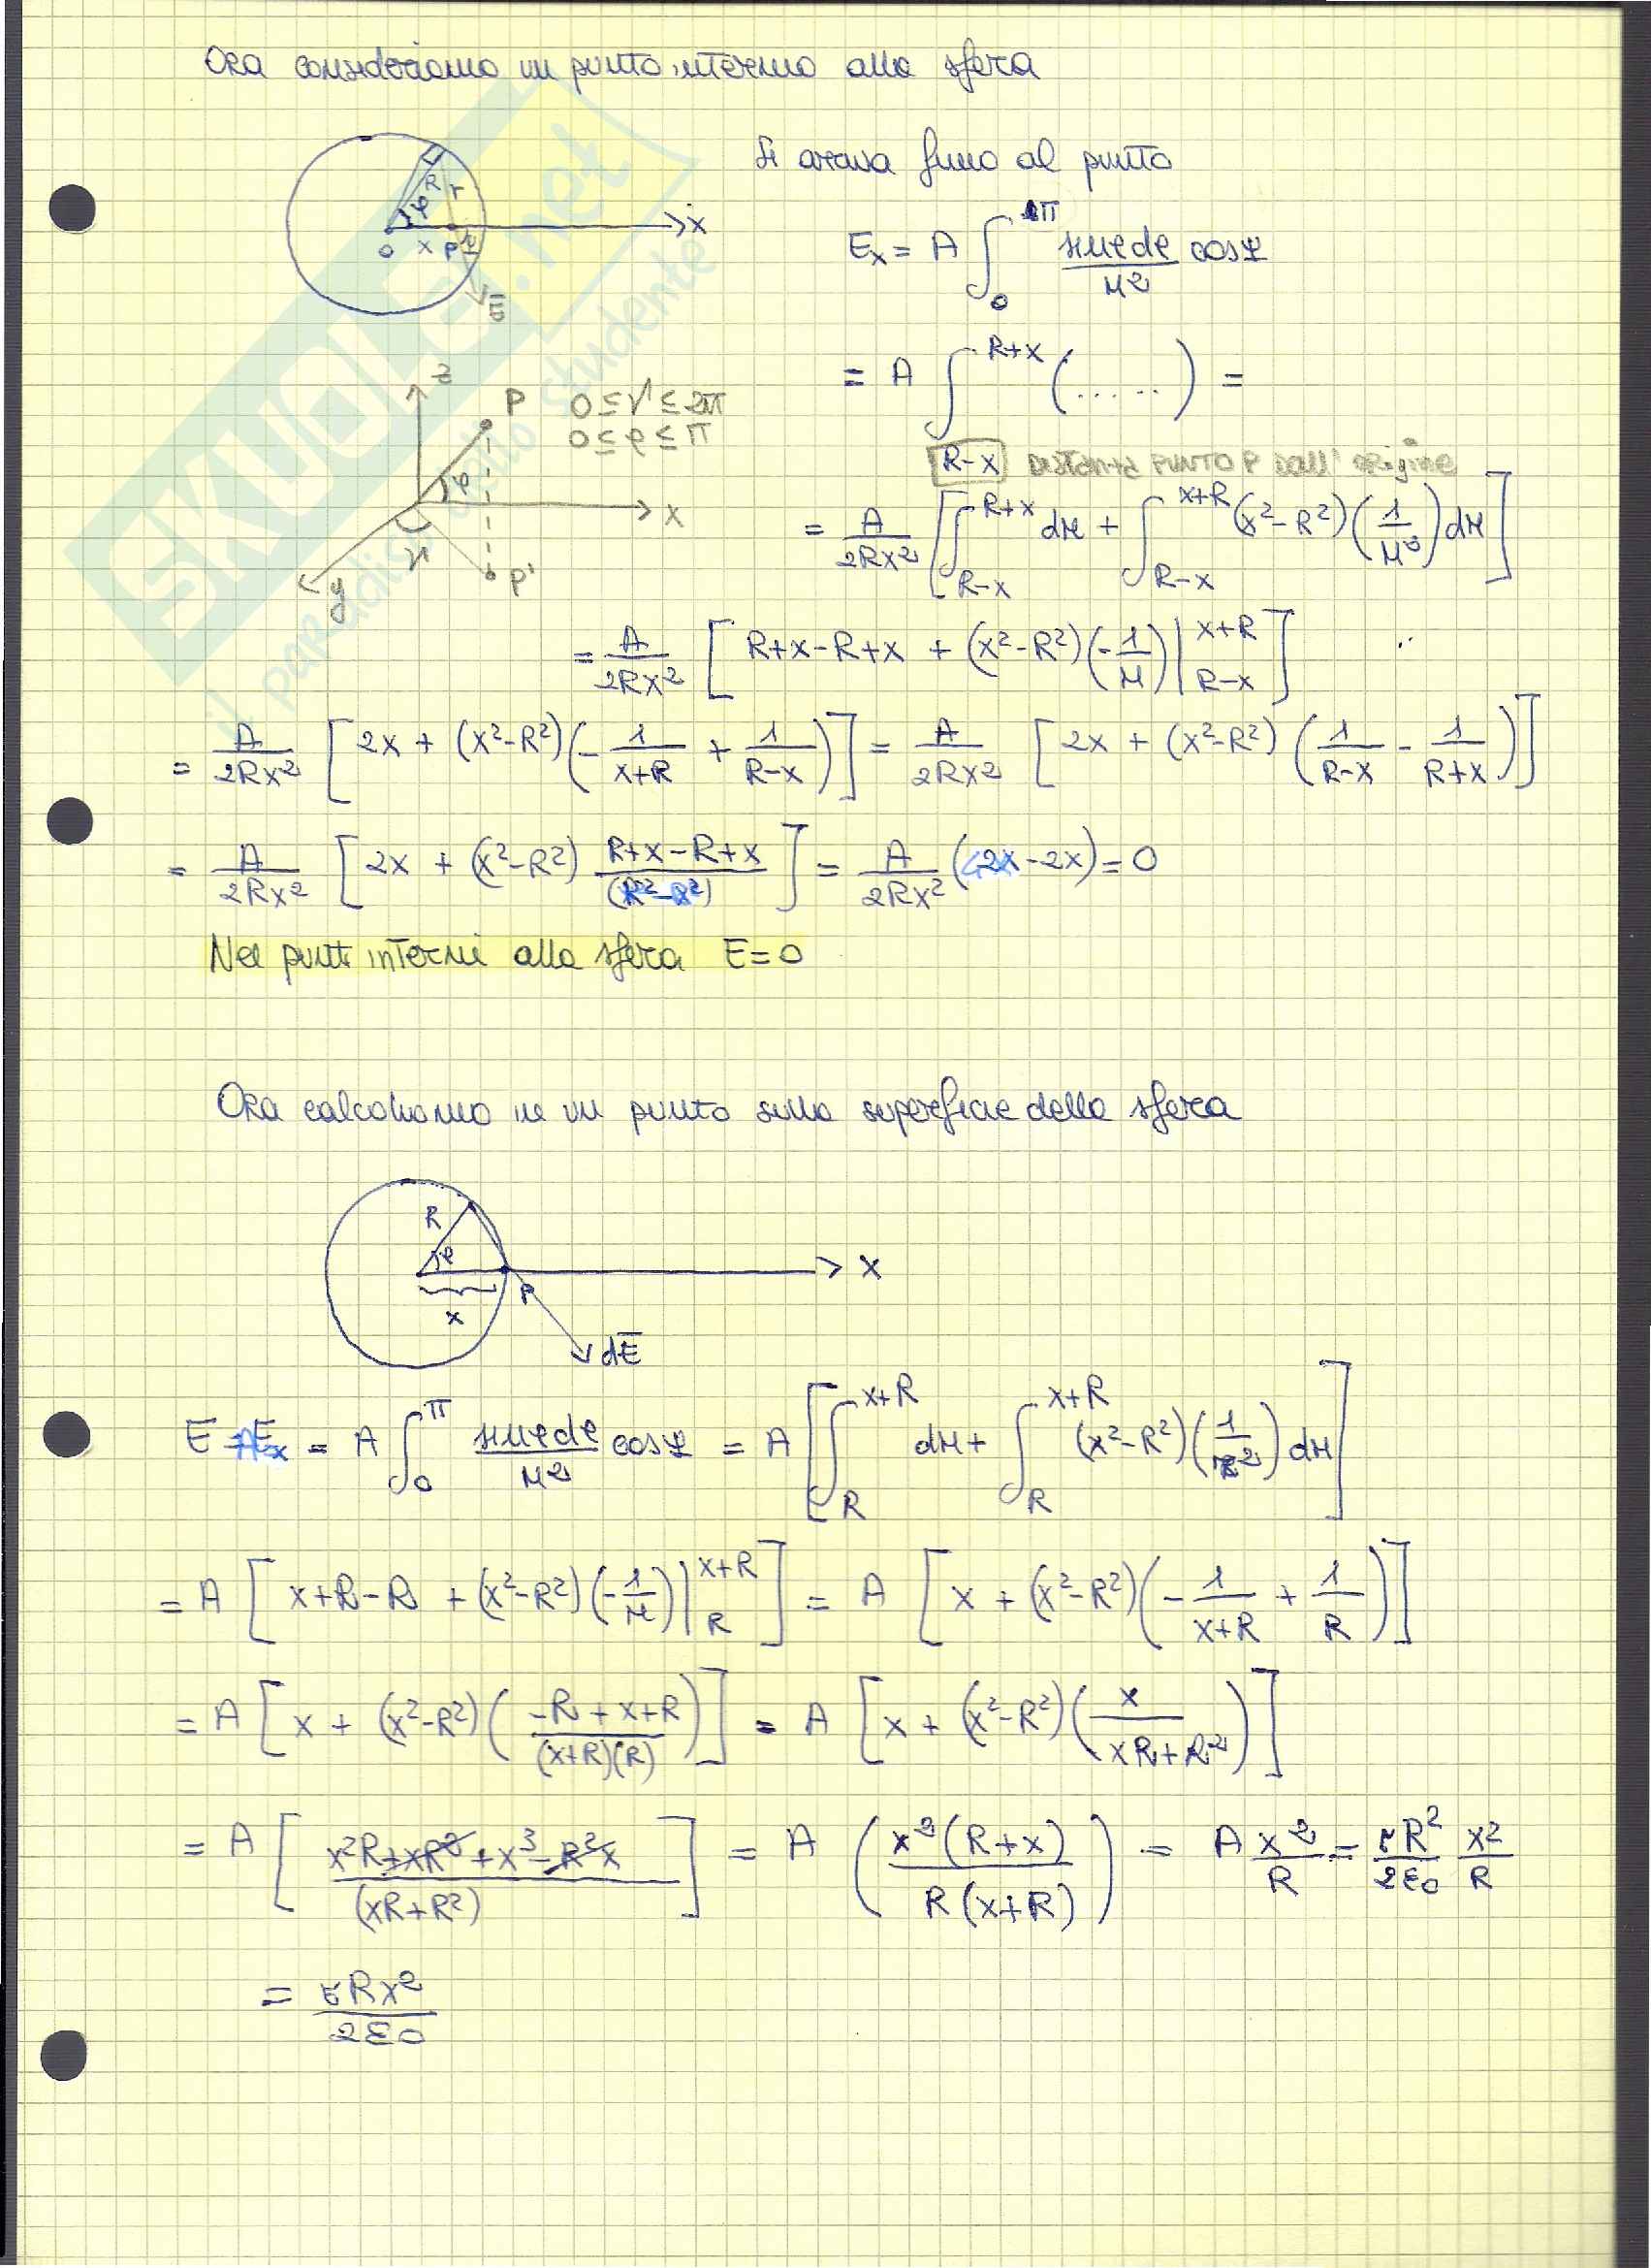 Ora consideriamo un punto interno alla sfera
R r
φ
O x P
x
E
Si arriva fino al punto
Ex = A ∫₀^π (senφdφ / r²) cosψ
= A ∫_{R-x}^{R+x} (.....) =
R-x DISTANZA PUNTO P dall'origine
z
P 0 ≤ ν ≤ 2π
0 ≤ φ ≤ π
φ
x
y P'
= A/2Rx² [∫_{R-x}^{R+x} dr + ∫_{R-x}^{x+R} (x²-R²)(1/r²)dr]
= A/2Rx² [R+x-R+x + (x²-R²)(-1/r)|_{R-x}^{x+R}]
= A/2Rx² [2x + (x²-R²)(-1/(x+R) + 1/(R-x))] = A/2Rx² [2x + (x²-R²)(1/(R-x) - 1/(R+x))]
= A/2Rx² [2x + (x²-R²) (R+x-R+x)/(R²-x²)] = A/2Rx² (2x-2x) = 0
Nei punti interni alla sfera E=0
Ora calcoliamo in un punto sulla superficie della sfera
R
φ
P x
x
dE
E = Ex = A ∫₀^π (senφdφ / r²) cosψ = A [∫_R^{x+R} dr + ∫_R^{x+R} (x²-R²)(1/r²)dr]
= A [x+R-R + (x²-R²)(-1/r)|_R^{x+R}] = A [x + (x²-R²)(-1/(x+R) + 1/R)]
= A [x + (x²-R²)((-R+x+R)/((x+R)(R)))] = A [x + (x²-R²)(x/(xR+R²))]
= A [(x²R+xR²+x³-R²x)/(xR+R²)] = A (x²(R+x)/(R(x+R))) = A x²/R = σR²/2ε₀ x²/R
= σRx²/2ε₀
SKUOLA.net
il paradiso dello studente